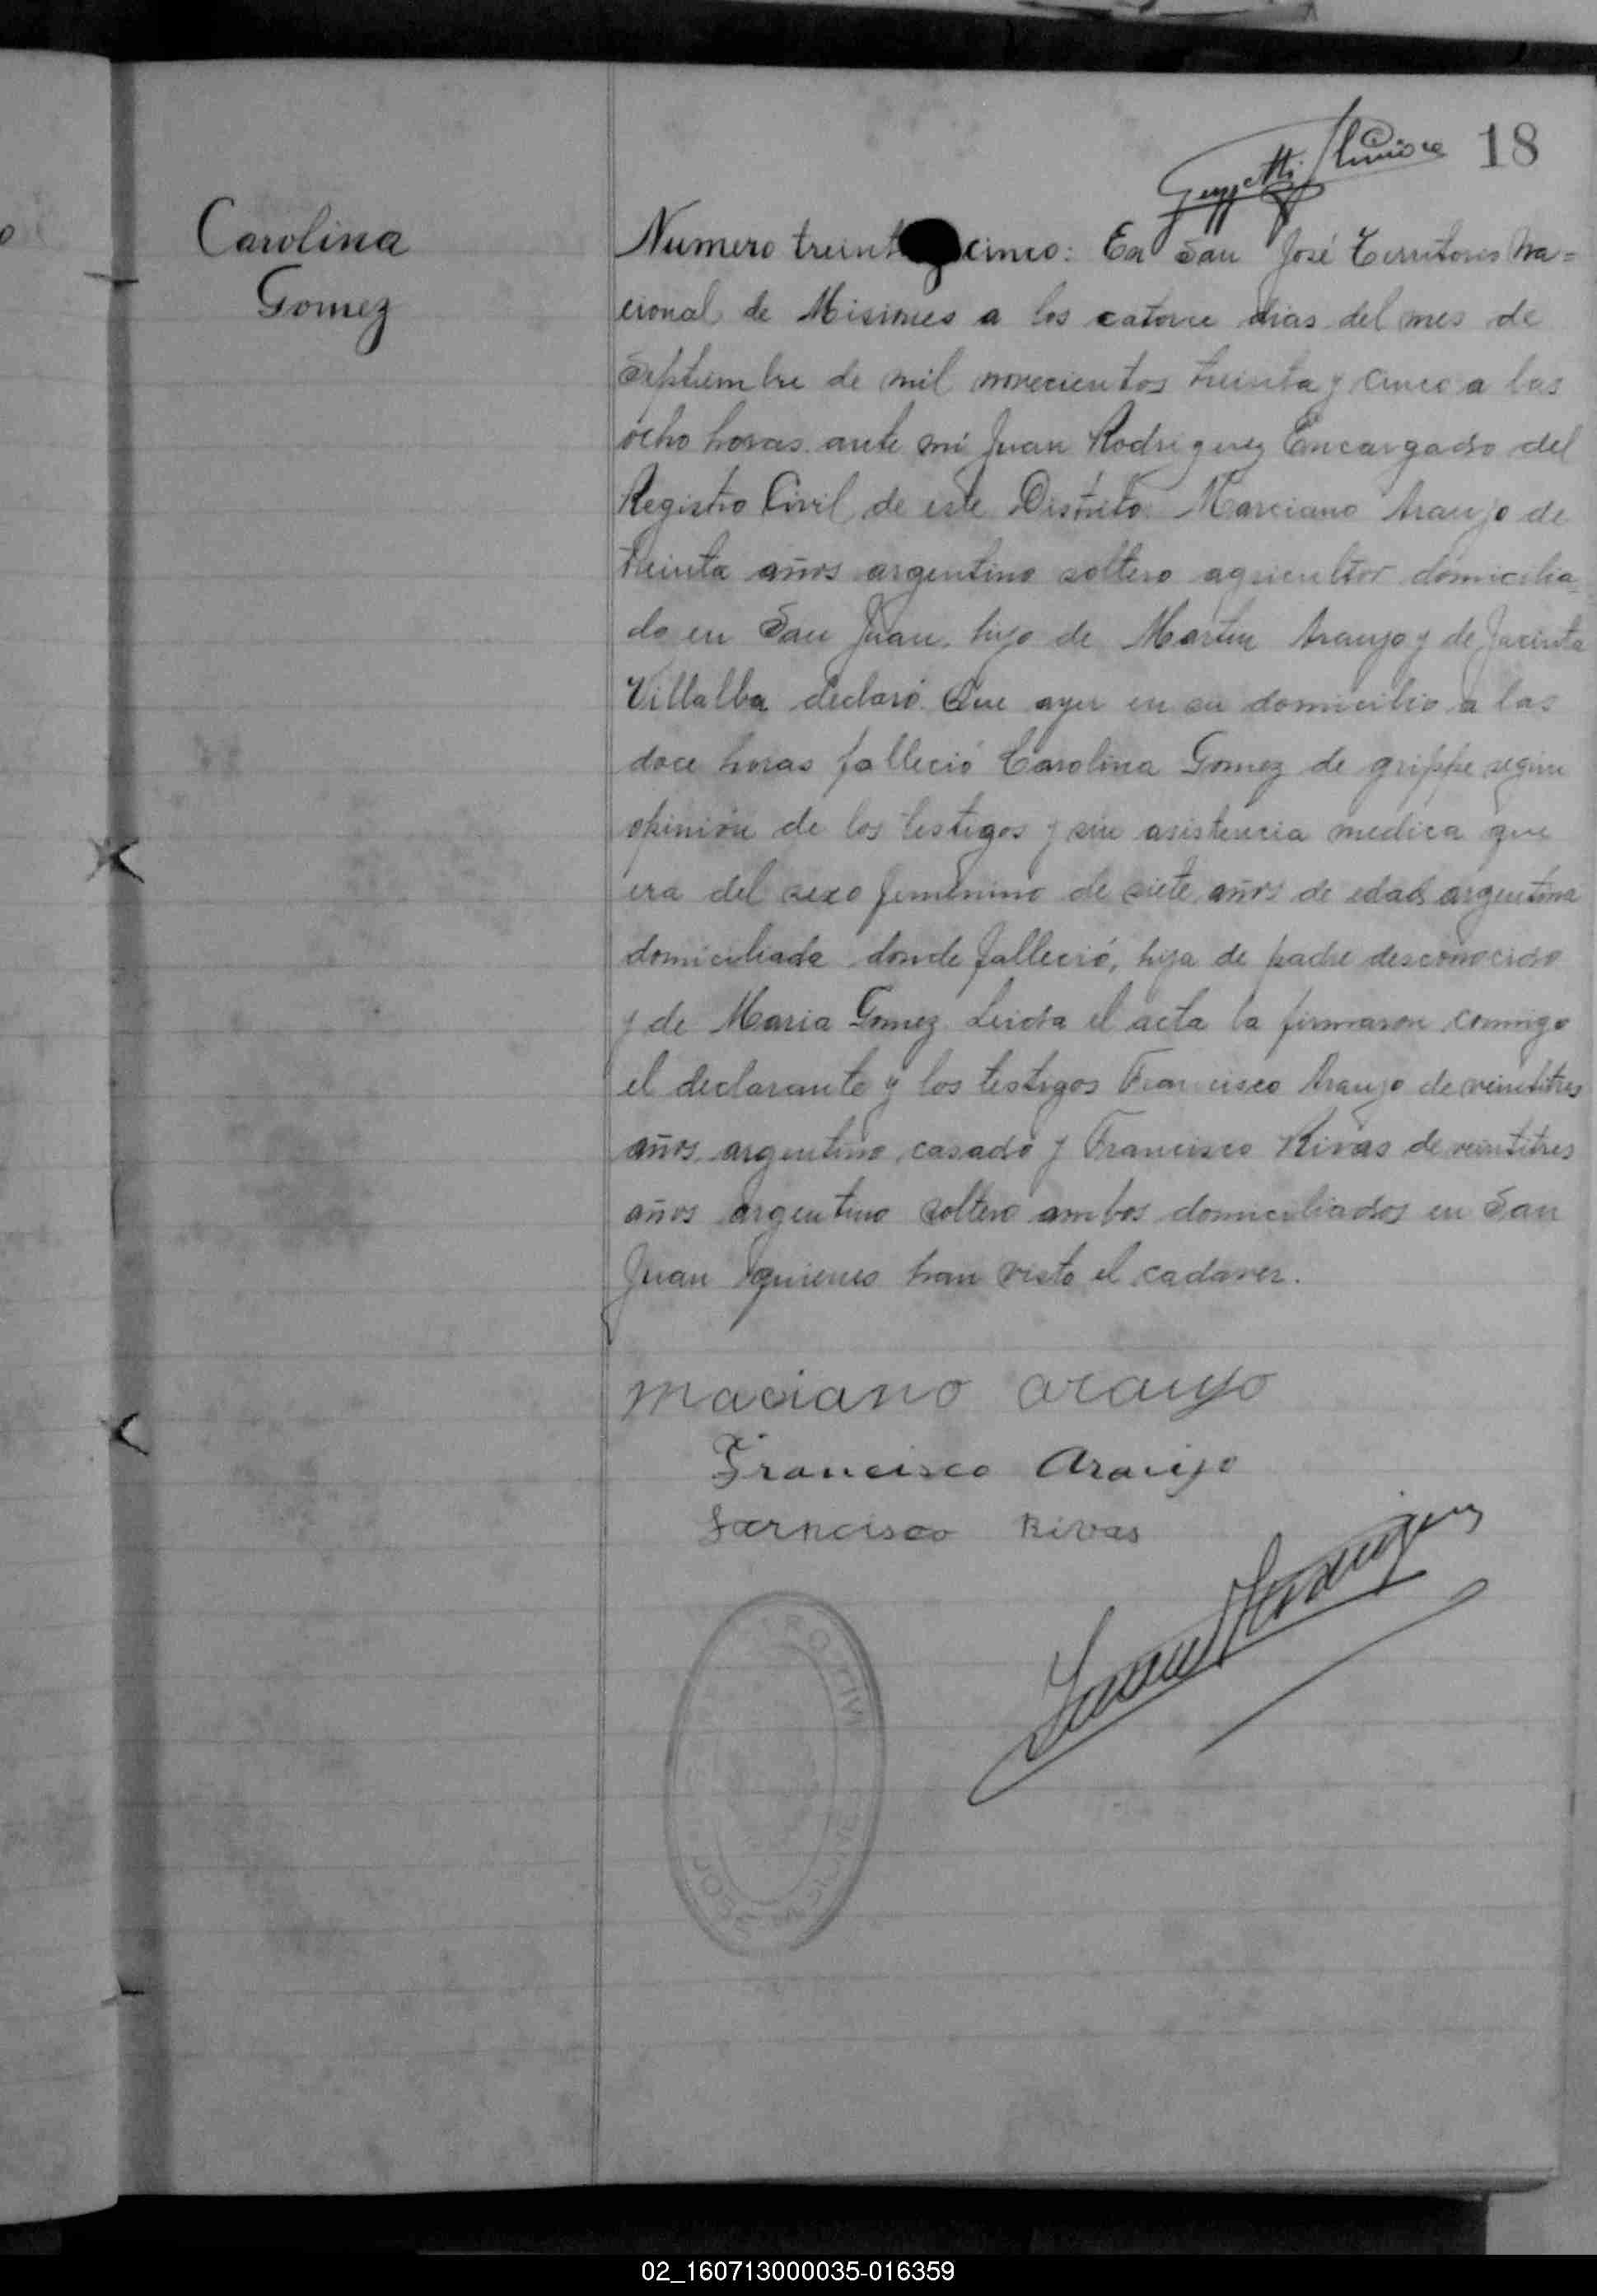 18
Carolina
Gomez
Numero treinta y cinco: En San José Territorio Na=
cional de Misiones a los catorce dias del mes de
Septiembre de mil novecientos treinta y cinco a las
ocho horas ante mi Juan Rodriguez Encargado del
Registro Civil de este Distrito. Marciano Araujo de
treinta años argentino soltero agricultor domicilia=
do en San Juan, hijo de Martin Araujo y de Jacinta
Villalba declaró Que ayer en su domicilio a las
doce horas falleció Carolina Gomez de grippe segun
opinión de los testigos y sin asistencia medica que
era del sexo femenino de siete años de edad argentina
domiciliada donde falleció, hija de padre desconocido
y de Maria Gomez Leida el acta la firmaron conmigo
el declarante y los testigos Francisco Araujo de veintitres
años argentino casado y Francisco Rivas de veintitres
años argentino soltero ambos domiciliados en San
Juan quienes han visto el cadaver.
maciano araujo
Francisco Araujo
Farncisco Rivas
Juan Rodriguez
02_160713000035-016359